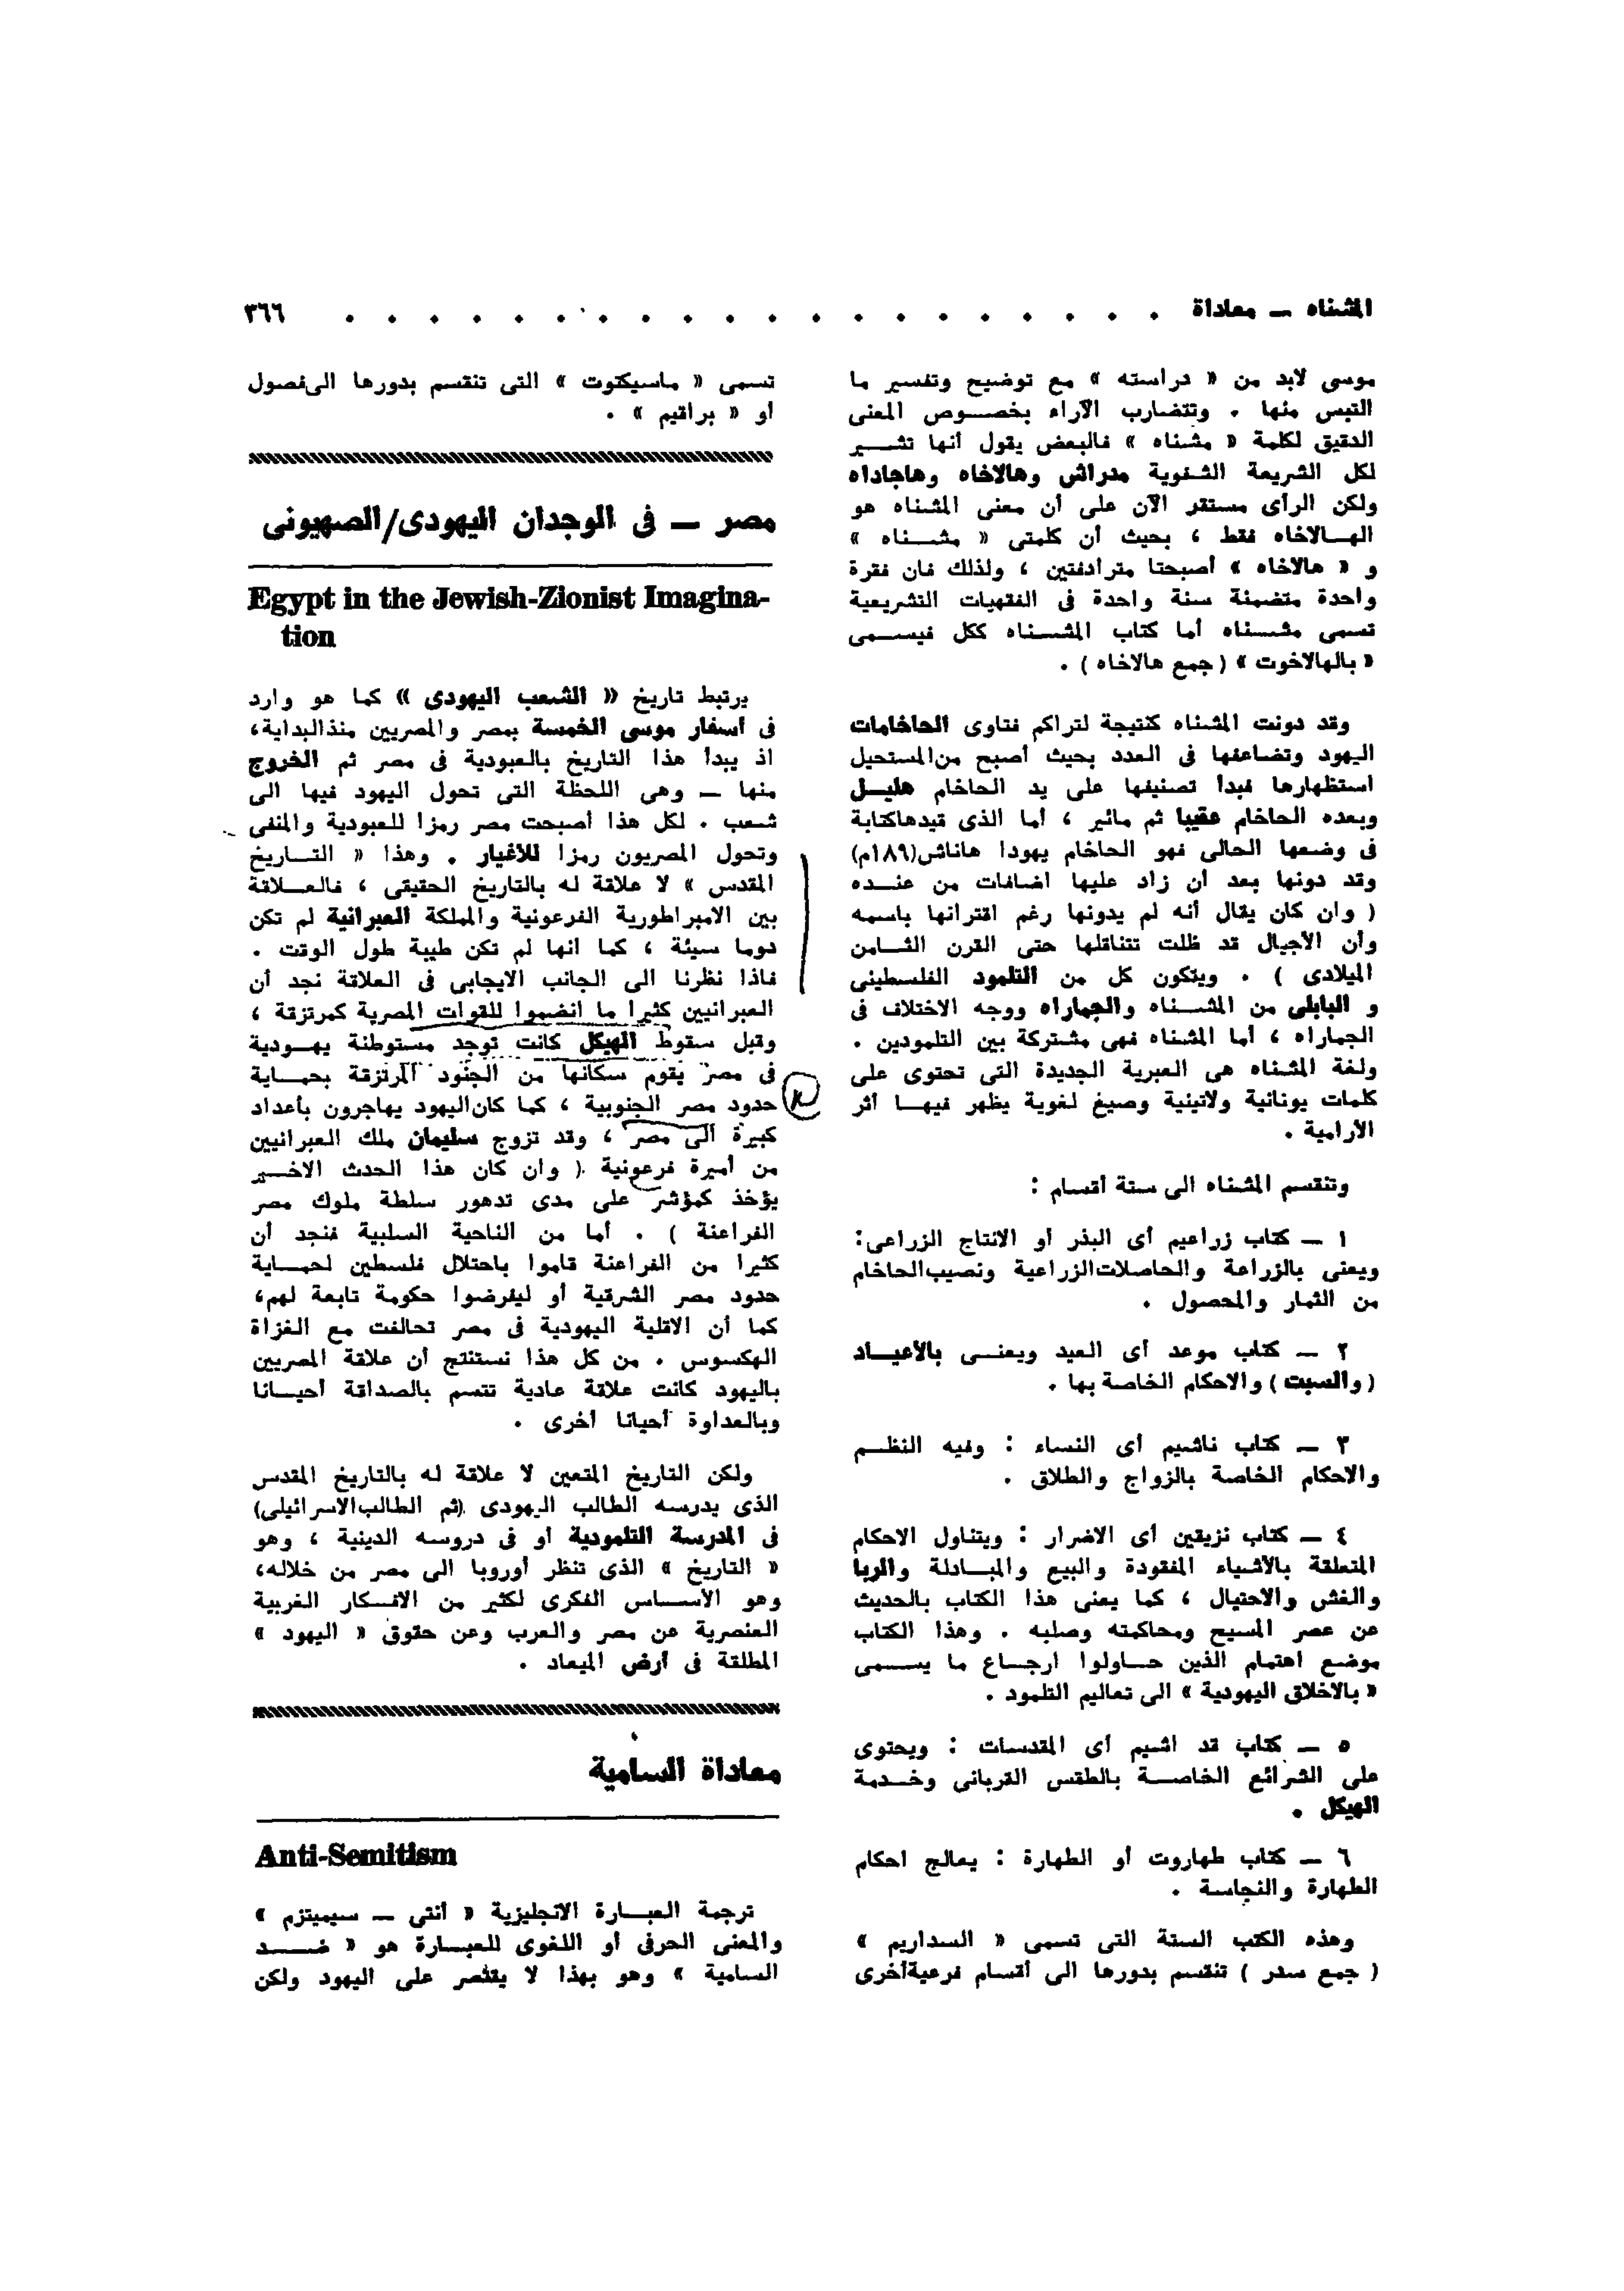 المشناه — معاداة . . . . . . . . . . . . . . . . . . . . ٣٦٦
موسى لابد من « دراسته » مع توضيح وتفسير ما
التبس منها . وتتضارب الآراء بخصوص المعنى
الدقيق لكلمة « مشناه » فالبعض يقول أنها تشير
لكل الشريعة الشفوية مدراش وهالاخاه وهاجاداه
ولكن الرأى مستقر الآن على أن معنى المشناه هو
الهالاخاه فقط ، بحيث أن كلمتى « مشناه »
و « هالاخاه » أصبحتا مترادفتين ، ولذلك فان فقرة
واحدة متضمنة سنة واحدة فى الفقهيات التشريعية
تسمى مشناه أما كتاب المشناه ككل فيسمى
« بالهالاخوت » ( جمع هالاخاه ) .
وقد دونت المشناه كنتيجة لتراكم فتاوى الحاخامات
اليهود وتضاعفها فى العدد بحيث أصبح من المستحيل
استظهارها فبدأ تصنيفها على يد الحاخام هليل
وبعده الحاخام عقيبا ثم مائير ، أما الذى قيدها كتابة
فى وضعها الحالى فهو الحاخام يهودا هاناشى (١٨٩م)
وقد دونها بعد أن زاد عليها اضافات من عنده
( وان كان يقال أنه لم يدونها رغم اقترانها باسمه
وأن الأجيال قد ظلت تتناقلها حتى القرن الثامن
الميلادى ) . ويتكون كل من التلمود الفلسطينى
و البابلى من المشناه والجماراه ووجه الاختلاف فى
الجماراه ، أما المشناه فهى مشتركة بين التلمودين .
ولغة المشناه هى العبرية الجديدة التى تحتوى على
كلمات يونانية ولاتينية وصيغ لغوية يظهر فيها أثر
الأرامية .
وتنقسم المشناه الى ستة أقسام :
١ — كتاب زراعيم أى البذر أو الانتاج الزراعى :
ويعنى بالزراعة والحاصلات الزراعية ونصيب الحاخام
من الثمار والمحصول .
٢ — كتاب موعد أى العيد ويعنى بالأعياد
( والسبت ) والاحكام الخاصة بها .
٣ — كتاب ناشيم أى النساء : وفيه النظم
والاحكام الخاصة بالزواج والطلاق .
٤ — كتاب نزيقين أى الاضرار : ويتناول الاحكام
المتعلقة بالأشياء المفقودة والبيع والمبادلة والربا
والغش والاحتيال ، كما يعنى هذا الكتاب بالحديث
عن عصر المسيح ومحاكمته وصلبه . وهذا الكتاب
موضع اهتمام الذين حاولوا ارجاع ما يسمى
« بالاخلاق اليهودية » الى تعاليم التلمود .
٥ — كتاب قد اشيم أى المقدسات : ويحتوى
على الشرائع الخاصة بالطقس القربانى وخدمة
الهيكل .
٦ — كتاب طهاروت أو الطهارة : يعالج احكام
الطهارة والنجاسة .
وهذه الكتب الستة التى تسمى « السداريم »
( جمع سدر ) تنقسم بدورها الى أقسام فرعية أخرى
تسمى « ماسيكتوت » التى تنقسم بدورها الى فصول
أو « براقيم » .
مصر — فى الوجدان اليهودى/الصهيونى
Egypt in the Jewish-Zionist Imagina-
tion
يرتبط تاريخ « الشعب اليهودى » كما هو وارد
فى أسفار موسى الخمسة بمصر والمصريين منذ البداية،
اذ يبدأ هذا التاريخ بالعبودية فى مصر ثم الخروج
منها — وهى اللحظة التى تحول اليهود فيها الى
شعب . لكل هذا أصبحت مصر رمزا للعبودية والمنفى
وتحول المصريون رمزا للأغيار . وهذا « التاريخ
المقدس » لا علاقة له بالتاريخ الحقيقى ، فالعلاقة
بين الامبراطورية الفرعونية والمملكة العبرانية لم تكن
دوما سيئة ، كما انها لم تكن طيبة طول الوقت .
فاذا نظرنا الى الجانب الايجابى فى العلاقة نجد أن
العبرانيين كثيرا ما انضموا للقوات المصرية كمرتزقة ،
وقبل سقوط الهيكل كانت توجد مستوطنة يهودية
فى مصر يقوم سكانها من الجنود المرتزقة بحماية
حدود مصر الجنوبية ، كما كان اليهود يهاجرون بأعداد
كبيرة الى مصر ، وقد تزوج سليمان ملك العبرانيين
من أميرة فرعونية ( وان كان هذا الحدث الاخير
يؤخذ كمؤشر على مدى تدهور سلطة ملوك مصر
الفراعنة ) . أما من الناحية السلبية فنجد أن
كثيرا من الفراعنة قاموا باحتلال فلسطين لحماية
حدود مصر الشرقية أو ليفرضوا حكومة تابعة لهم،
كما أن الاقلية اليهودية فى مصر تحالفت مع الغزاة
الهكسوس . من كل هذا نستنتج أن علاقة المصريين
باليهود كانت علاقة عادية تتسم بالصداقة أحيانا
وبالعداوة أحيانا أخرى .
ولكن التاريخ المتعين لا علاقة له بالتاريخ المقدس
الذى يدرسه الطالب اليهودى (ثم الطالب الاسرائيلى)
فى المدرسة التلمودية أو فى دروسه الدينية ، وهو
« التاريخ » الذى تنظر أوروبا الى مصر من خلاله،
وهو الأساس الفكرى لكثير من الافكار الغربية
العنصرية عن مصر والعرب وعن حقوق « اليهود »
المطلقة فى أرض الميعاد .
معاداة السامية
Anti-Semitism
ترجمة العبارة الانجليزية « أنتى — سيميتزم »
والمعنى الحرفى أو اللغوى للعبارة هو « ضد
السامية » وهو بهذا لا يقتصر على اليهود ولكن